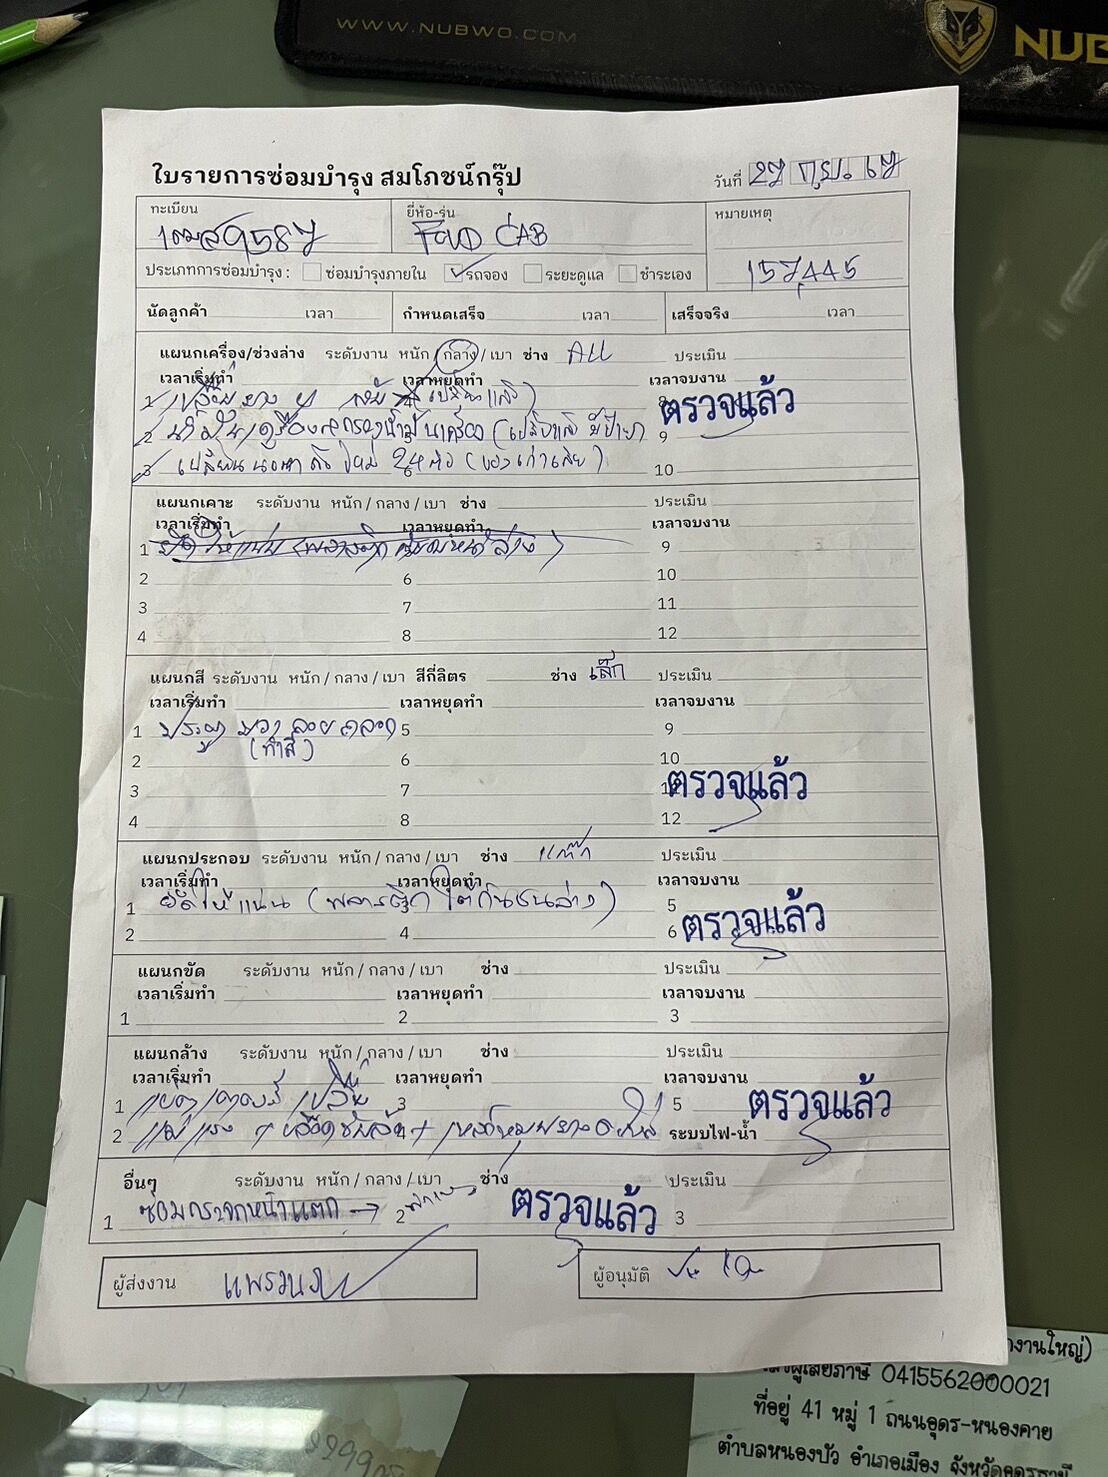 WWW.NUBWO.COM
NUB
ใบรายการซ่อมบำรุง สมโภชน์กรุ๊ป
วันที่ 27 กย. 67
ทะเบียน
ยี่ห้อ-รุ่น
หมายเหตุ
9587
CAB
ประเภทการซ่อมบำรุง : ซ่อมบำรุงภายใน รถจอง ระยะดูแล ชำระเอง
157,445
นัดลูกค้า เวลา กำหนดเสร็จ เวลา เสร็จจริง เวลา
แผนกเครื่อง/ช่วงล่าง ระดับงาน หนัก / กลาง / เบา ช่าง ALL ประเมิน
เวลาเริ่มทำ เวลาหยุดทำ เวลาจบงาน
1 เปลี่ยนยาง
ตรวจแล้ว
2 น้ำมันเครื่อง กรองน้ำมันเครื่อง 9
3 เปลี่ยน ใหม่ 2 (ของเก่าเสีย) 10
แผนกเคาะ ระดับงาน หนัก / กลาง / เบา ช่าง ประเมิน
เวลาเริ่มทำ เวลาหยุดทำ เวลาจบงาน
1 ยึดให้แน่น 9
2 6 10
3 7 11
4 8 12
แผนกสี ระดับงาน หนัก / กลาง / เบา สีกี่ลิตร ช่าง เล็ก ประเมิน
เวลาเริ่มทำ เวลาหยุดทำ เวลาจบงาน
1 ประตู ขวา ลอย ถลอก 5 9
(ทำสี)
2 6 10
3 7 11 ตรวจแล้ว
4 8 12
แผนกประกอบ ระดับงาน หนัก / กลาง / เบา ช่าง ประเมิน
เวลาเริ่มทำ เวลาหยุดทำ เวลาจบงาน
1 ยึดให้แน่น (พลาสติกใต้กันชนล่าง) 5
2 4 6 ตรวจแล้ว
แผนกขัด ระดับงาน หนัก / กลาง / เบา ช่าง ประเมิน
เวลาเริ่มทำ เวลาหยุดทำ เวลาจบงาน
1 2 3
แผนกล้าง ระดับงาน หนัก / กลาง / เบา ช่าง ประเมิน
เวลาเริ่มทำ เวลาหยุดทำ เวลาจบงาน
1 แบตเตอรี่ 3 5 ตรวจแล้ว
2 แม่แรง ระบบไฟ-น้ำ
อื่นๆ ระดับงาน หนัก / กลาง / เบา ช่าง ประเมิน
1 ซ่อมกระจกหน้าแตก → 2 ตรวจแล้ว 3
ผู้ส่งงาน
ผู้อนุมัติ
งานใหญ่)
เลขผู้เสียภาษี 0415562000021
ที่อยู่ 41 หมู่ 1 ถนนอุดร-หนองคาย
ตำบลหนองบัว อำเภอเมือง จังหวัดอุดรธานี